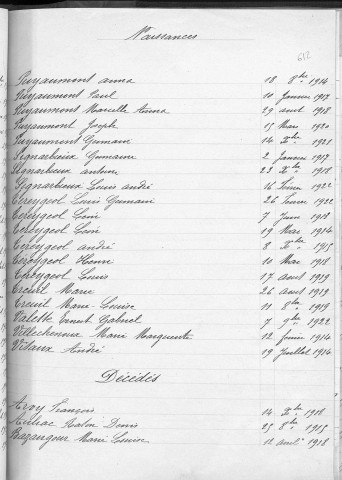 Naissances
612
Puyaumont anna 18 8bre 1914
Puyaumont Paul 10 Janvier 1917
Puyaumont Marcelle Anna 29 aout 1918
Puyaumont Joseph 15 Mars 1920
Puyaumont Germain 14 Xbre 1921
Signarbieux Germaine 2 Janvier 1917
Signarbieux antoine 23 Xbre 1918
Signarbieux Louis andré 16 Février 1922
Tereygeol Louis Germain 26 Février 1922
Tereygeol Léon 7 Juin 1918
Tereygeol Léon 19 Mars 1914
Tereygeol andré 8 Xbre 1915
Tereygeol Henri 10 Mai 1918
Tereygeol Louis 17 aout 1919
Treuil Marie 26 aout 1919
Treuil Marie Louise 11 8bre 1919
Valette Ernest Gabriel 7 9bre 1922
Villechenoux Marie Marguerite 12 Février 1914
Vitaux André 19 Juillet 1914
Décédés
Arvy François 14 Xbre 1918
Denis 25 8bre 1915
Marie Louise 12 avril 1918